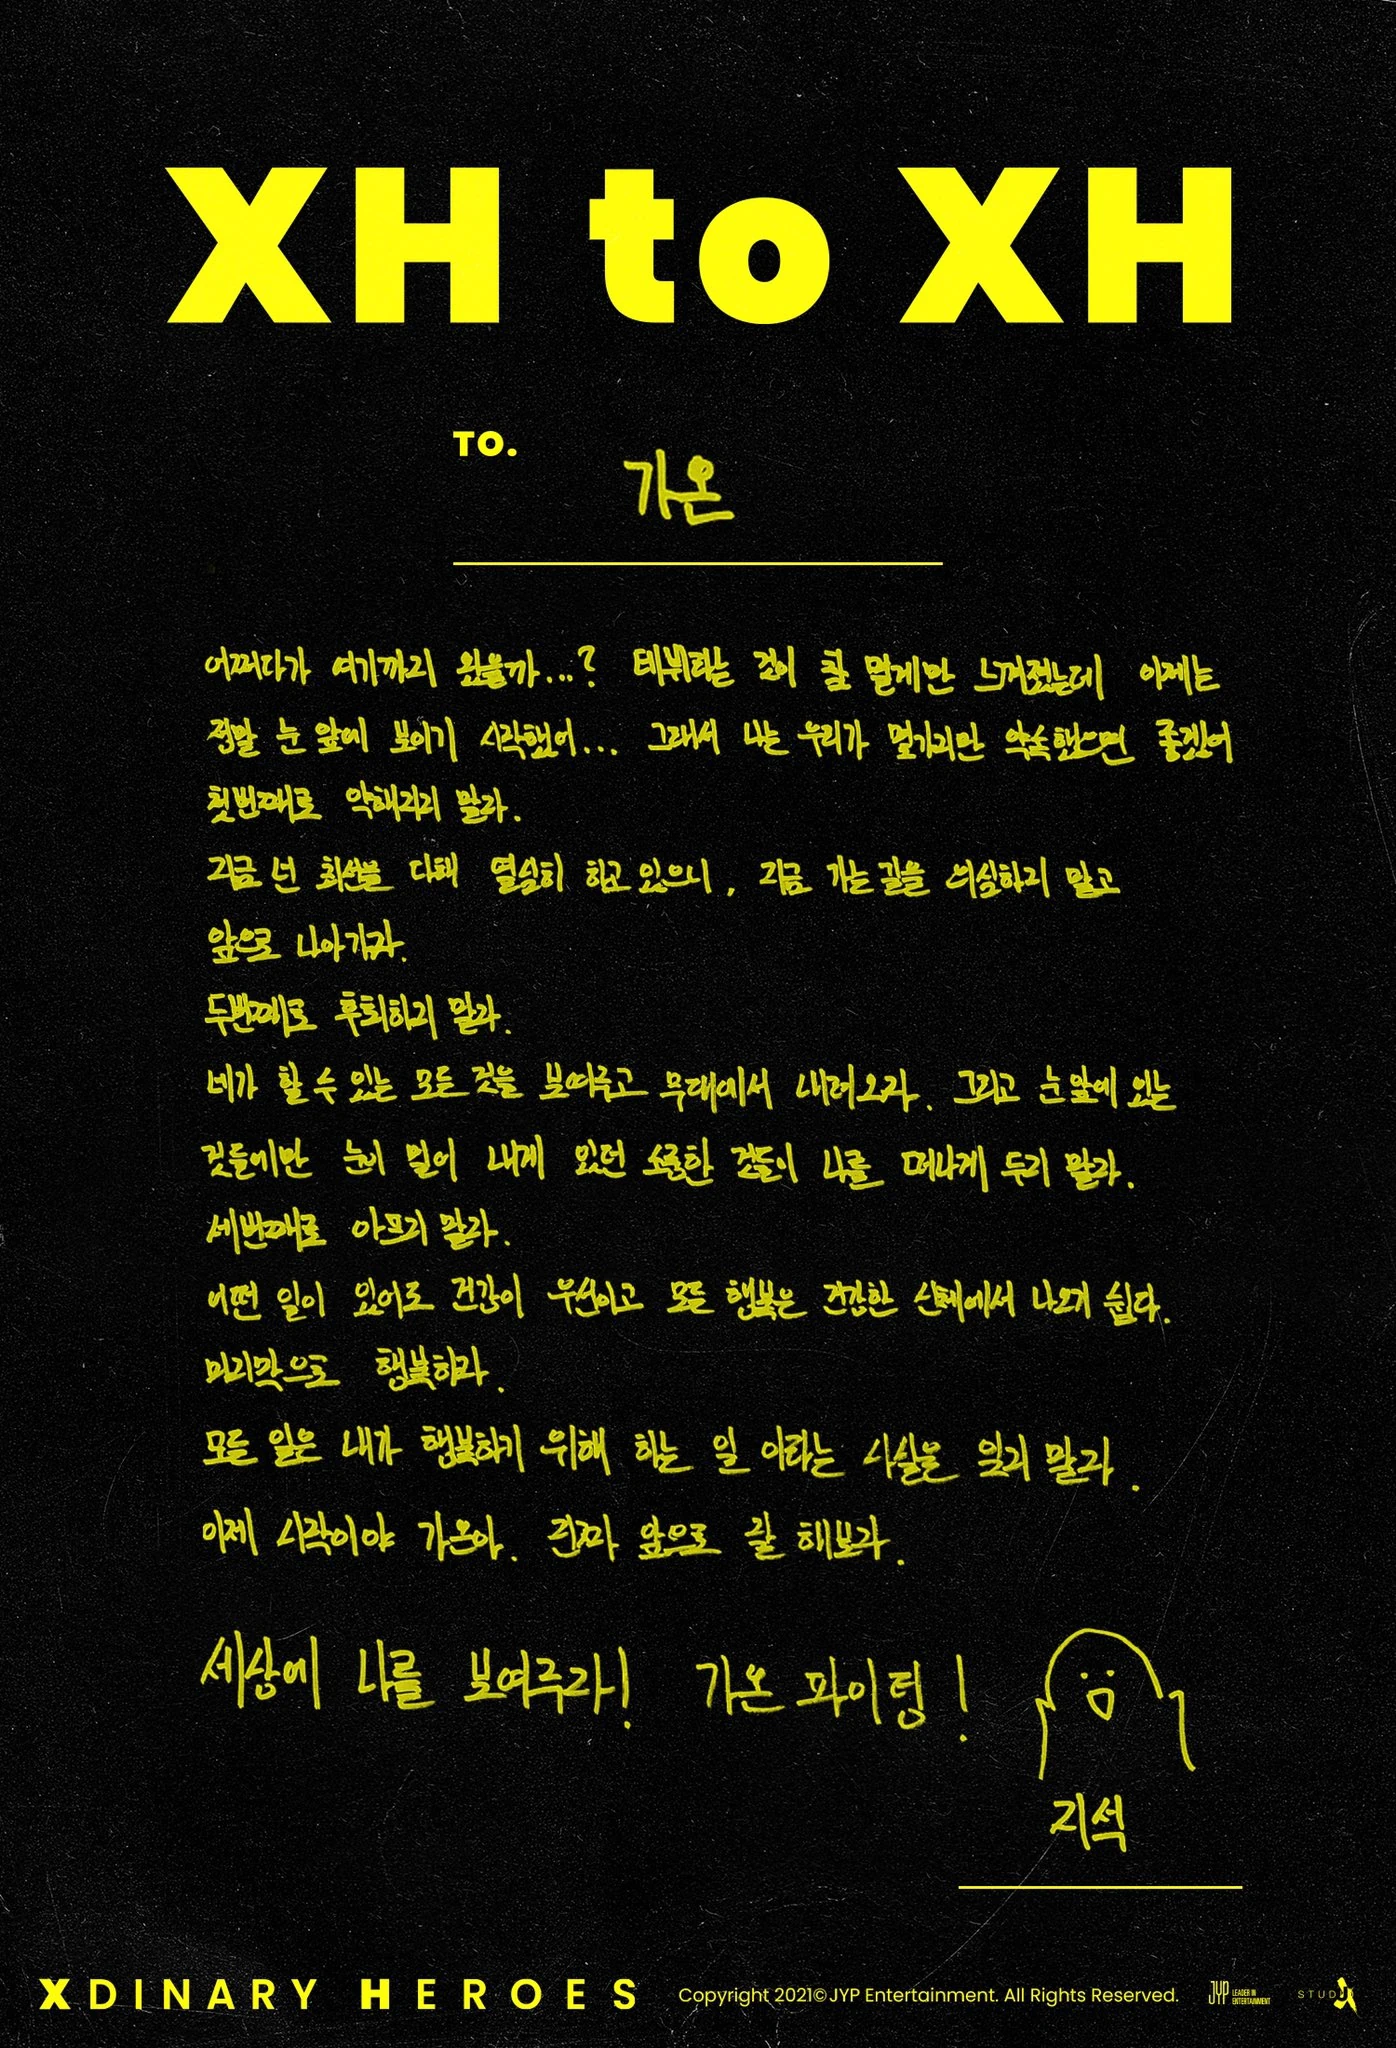 XH to XH
TO.
가온
어쩌다가 여기까지 왔을까...? 데뷔라는 것이 참 멀게만 느껴졌는데 이제는
정말 눈 앞에 보이기 시작했어... 그래서 나는 우리가 몇가지만 약속했으면 좋겠어
첫번째로 약해지지 말라.
지금 넌 최선을 다해 열심히 하고 있으니, 지금 가는 길을 의심하지 말고
앞으로 나아가자.
두번째로 후회하지 말라.
네가 할 수 있는 모든 것을 보여주고 무대에서 내려오자. 그리고 눈 앞에 있는
것들에만 눈이 멀어 내게 있던 소중한 것들이 나를 떠나게 두지 말라.
세번째로 아프지 말라.
어떤 일이 있어도 건강이 우선이고 모든 행복은 건강한 신체에서 나오기 쉽다.
마지막으로 행복하라.
모든 일은 내가 행복하기 위해 하는 일 이라는 사실을 잊지 말라.
이제 시작이야 가온아. 진짜 앞으로 잘 해보자.
세상에 나를 보여주자! 가온 파이팅!
지석
XDINARY HEROES Copyright 2021©JYP Entertainment. All Rights Reserved. JYP LEADER IN ENTERTAINMENT